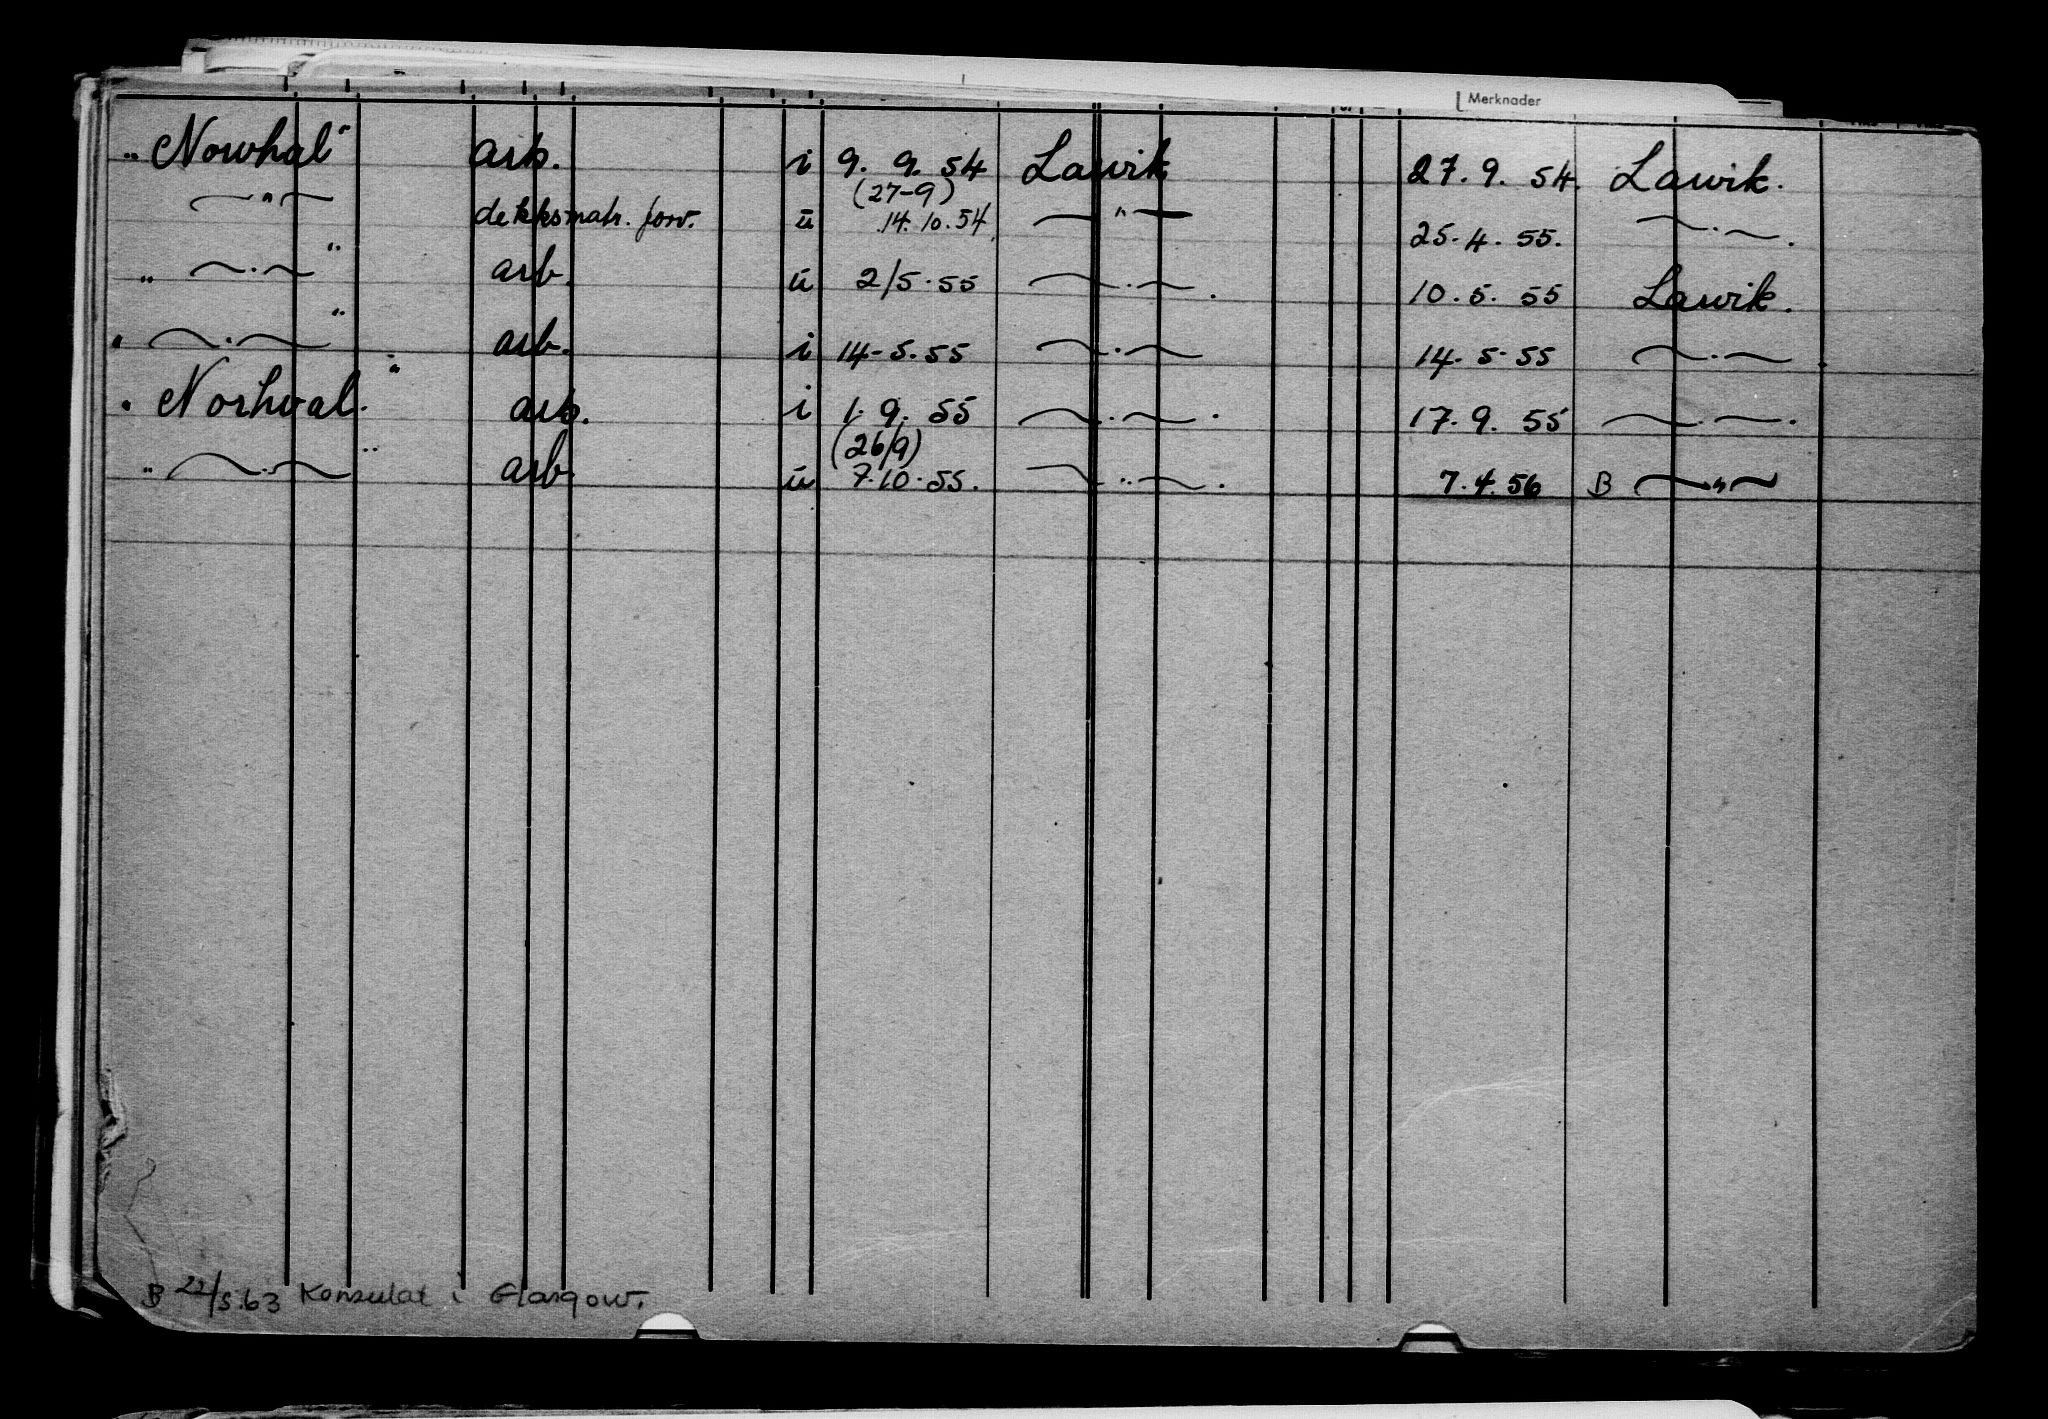 Merknader
„Norhval" arb. i 9. 9. 54 Larvik 27. 9. 54. Larvik.
—"— dekksmatr. forv. u (27-9) 14.10.54 —"— 25. 4. 55. —"—.
„ —"— " arb. u 2/5. 55 —"—. 10. 5. 55 Larvik.
„ —"— " arb. i 14-5. 55 —"— 14. 5. 55 —"—.
„Norhval." arb. i 1. 9. 55 —"—. 17. 9. 55 —"—.
„ —"— " arb. u (26/9) 7.10.55. —"—. 7.4.56 B —"—
B 22/5.63 Konsulat i Glasgow.